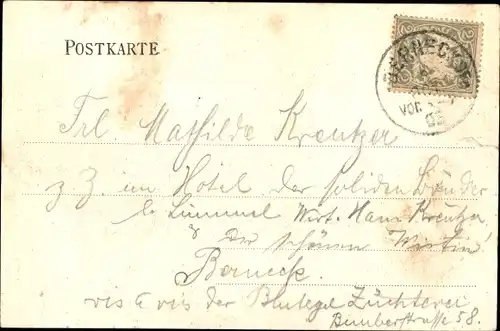 POSTKARTE
BERNECK
VOR.
Frl. Mathilde Kreutzer
z. Z. im Hotel der soliden Brüder
b. Wirt. Hans Kreutzer
& Der schönen Wirtin
Berneck.
vis à vis der Blutegel Züchterei
Bimberstrasse 58.